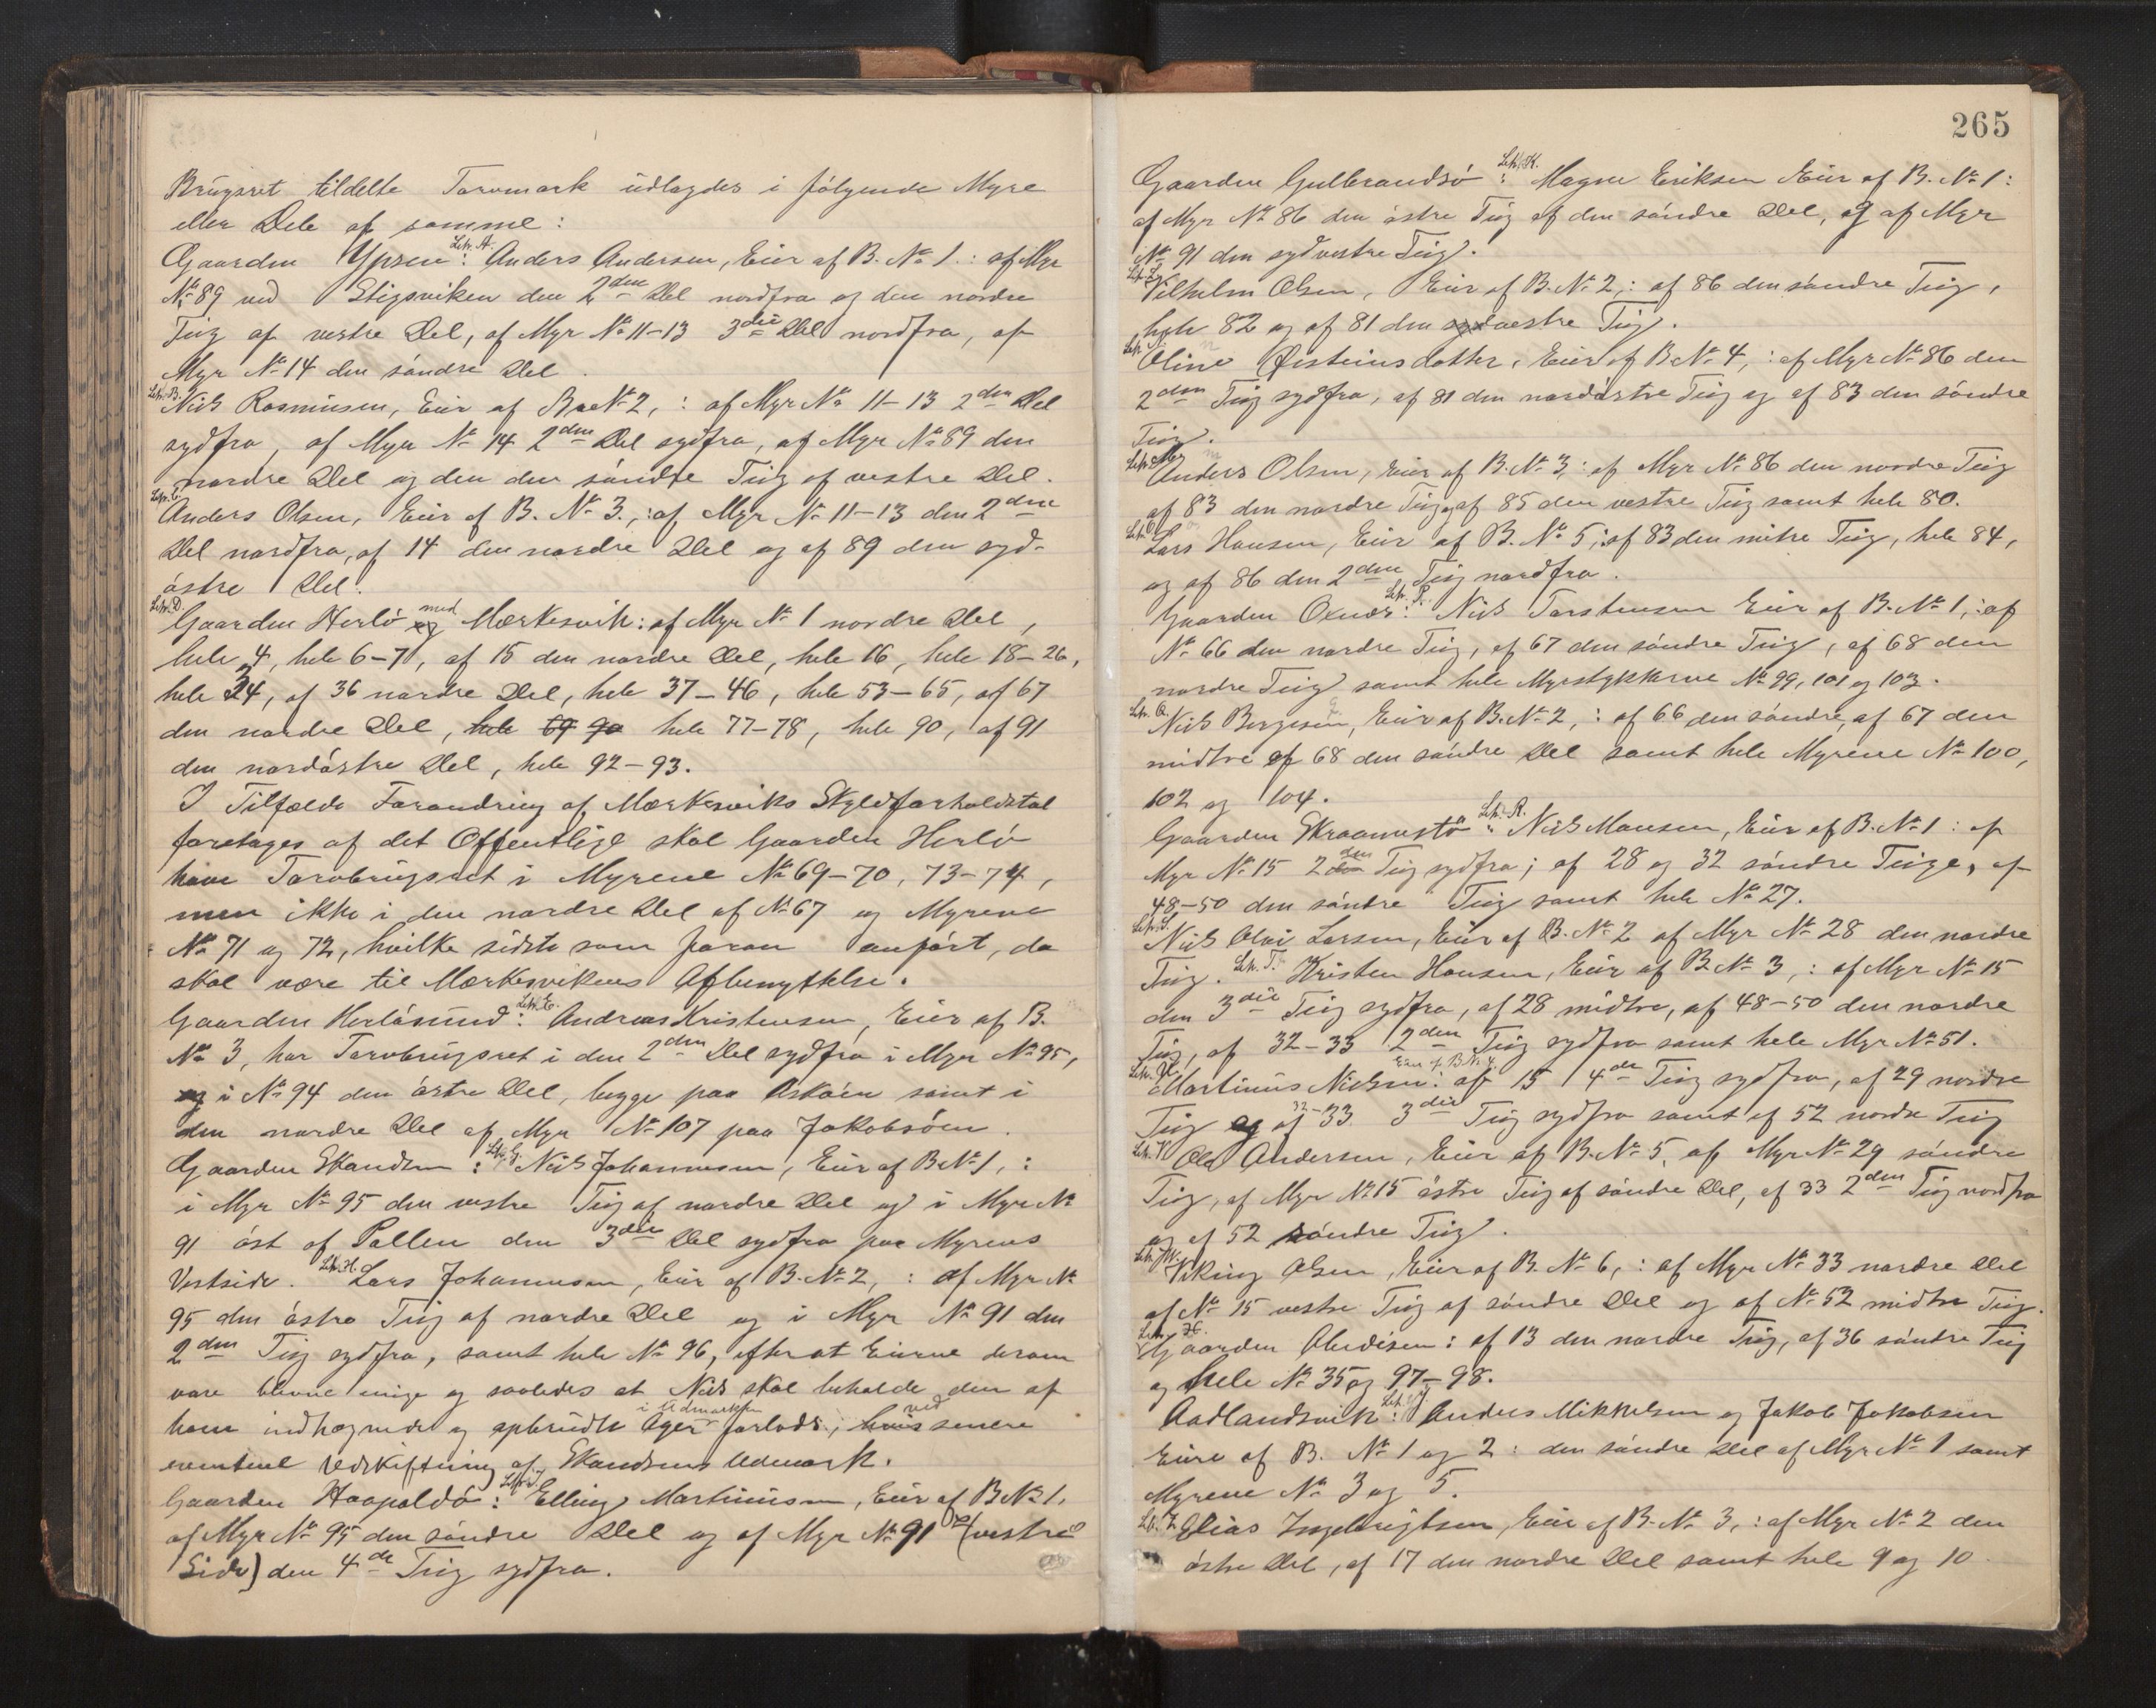 Brugsret tildelte Torvmark udlagdes i følgende Myre
eller Dele af samme:
Litr. A.
Gaarden Ypsen: Anders Andersen, Eier af B. No 1.: af Myr
No 89 ved Stigsviken den 2den Del nordfra og den nordre
Teig af vestre Del, af Myr No 11-13 3die Del nordfra, af
Myr No 14 den søndre Del.
Litr. B.
Nils Rasmusen, Eier af No 2,: af Myr No 11-13 2den Del
sydfra, af Myr No 14 2den Del sydfra, af Myr No 89 den
nordre Del og den den søndre Teig af vestre Del.
Litr. C.
Anders Olsen, Eier af B. No 3.,: af Myr No 11-13 den 2den
Del nordfra, af 14 den nordre Del og af 89 den syd-
østre Del.
Litr. D.
Gaarden Herlø og med Mærkesvik: af Myr No 1 nordre Del,
hele 4, hele 6-7, af 15 den nordre Del, hele 16, hele 18-26,
hele 34, af 36 nordre Del, hele 37-46, hele 53-65, af 67
den nordre Del, hele 69 70 hele 77-78, hele 90, af 91
den nordøstre Del, hele 92-93.
I Tilfælde Forandring af Mærkesviks Skyldforholdstal
foretages af det Offentlige skal Gaarden Herlø
have Torvbrugsret i Myrene No 69-70, 73-74,
men ikke i den nordre Del af No 67 og Myrene
No 71 og 72, hvilke sidste som foran anført, da
skal være til Mærkesvikens Afbenyttelse.
Litr. E.
Gaarden Herløsund: Andreas Kristensen, Eier af B.
No 3, har Torvbrugsret i den 2den Del sydfra i Myr No 95,
og i No 94 den østre Del, begge paa Askøen samt i
den nordre Del af Myr No 107 paa Jakobsøen.
Litr. G.
Gaarden Skandsen: Nils Johannesen, Eier af B No 1,:
i Myr No 95 den vestre Teig af nordre Del og i Myr No
91 øst af Pollen den 3die Del sydfra paa Myrens
Vestside. Litr. H. Lars Johannesen, Eier af B. No 2,: af Myr No
95 den østre Teig af nordre Del og i Myr No 91 den
2den Teig sydfra, samt hele No 96, efterat Eierne derom
vare blevne enige og saaledes at Nils skal beholde den af
ham indhegnede og opbrudte Ager i Udmarken forlods, hvis ved senere
eventuel Udskiftning af Skandsens Udmark.
Litr. I.
Gaarden Haapoldø: Elling Martinusen, Eier af B No 1.
af Myr No 95 den søndre Del og af Myr No 91 (vestre
Side) den 4de Teig sydfra.
265
Litr. K.
Gaarden Gulbrandsø: Magne Eriksen Eier af B. No 1:
af Myr No 86 den østre Teig af den søndre Del, og af Myr
No 91 den sydvestre Teig.
Litr. L.
Vilhelm Olsen, Eier af B. No 2,: af 86 den søndre Teig,
hele 82 og af 81 den sydvestre Teig.
Litr. N.
Oline Øisteinsdotter, Eier af B No 4,: af Myr No 86 den
2den Teig sydfra, af 81 den nordøstre Teig og af 83 den søndre
Teig.
Litr. M.
Anders Olsen, Eier af B. No 3,: af Myr No 86 den nordre Teig
af 83 den nordre Teig og af 85 den vestre Teig samt hele 80.
Litr. O.
Lars Hansen, Eier af B. No 5,: af 83 den mitre Teig, hele 84,
og af 86 den 2den Teig nordfra.
Litr. P.
Gaarden Oxnes: Nils Torstensen Eier af B. No 1,: af
No 66 den nordre Teig, af 67 den søndre Teig, af 68 den
nordre Teig samt hele Myrstykkerne No 99, 101 og 103.
Litr. Q.
Nils Børgesen, Eier af B. No 2,: af 66 den søndre, af 67 den
midtre af 68 den søndre Del samt hele Myrene No 100,
102 og 104.
Litr. R.
Gaarden Skraamestø: Nils Monsen, Eier af B. No 1: af
Myr No 15 2den Teig sydfra; af 28 og 32 søndre Teige, af
48-50 den søndre Teig samt hele No 27.
Litr. S.
Nils Olai Larsen, Eier af B. No 2 af Myr No 28 den nordre
Teig. Litr. T. Kristen Hansen, Eier af B No 3,: af Myr No 15
den 3die Teig sydfra, af 28 midtre, af 48-50 den nordre
Teig, af 32-33 2den Teig sydfra samt hele Myr No 51.
Litr. U. Eier af B No 4
Martinus Nielsen: af 15 4de Teig sydfra, af 29 nordre
Teig og af 32-33 3die Teig sydfra samt af 52 nordre Teig
Litr. V.
Ole Andersen, Eier af B. No 5, af Myr No 29 søndre
Teig, af Myr No 15 østre Teig af søndre Del, af 33 2den Teig nordfra
og af 52 søndre Teig.
Litr. W.
Viking Olsen, Eier af B. No 6,: af Myr No 33 nordre Del
af No 15 vestre Teig af søndre Del og af No 52 midtre Teig.
Litr. X.
Gaarden Abedisen: af 13 den nordre Teig, af 36 søndre Teig
og hele No 35 og 97-98.
Litr. Y
Aadlandsvik: Anders Mikkelsen og Jakob Jakobsen
Eiere af B. No 1 og 2: den søndre Del af Myr No 1 samt
Myrene No 3 og 5.
Litr. Z.
Elias Ingebrigtsen, Eier af B. No 3,: af Myr No 2 den
østre Del, af 17 den nordre Del samt hele 9 og 10